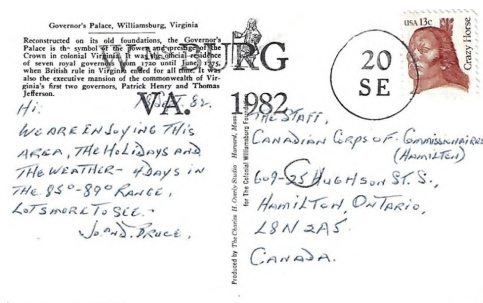 Governor's Palace, Williamsburg, Virginia
Reconstructed on its old foundations, the Governor's
Palace is the symbol of the power and prestige of the
Crown in colonial Virginia. It was the official residence
of seven royal governors from 1720 until June, 1775,
when British rule in Virginia ended for all time. It was
also the executive mansion of the commonwealth of Vir-
ginia's first two governors, Patrick Henry and Thomas
Jefferson.
WMSBURG
VA. 1982
20
SE
USA 13c
Crazy Horse
Sept. 82.
Hi.
WE ARE ENJOYING THIS
AREA, THE HOLIDAYS AND
THE WEATHER - 4 DAYS IN
THE 85°-89° RANGE,
LOTS MORE TO SEE. -
BRUCE.
Produced by The Charles H. Overly Studio
for The Colonial Williamsburg
THE STAFF,
CANADIAN CORPS OF COMMISSIONAIRES
(HAMILTON)
609-25 HUGHSON ST. S.,
HAMILTON, ONTARIO,
L8N 2A5
CANADA.